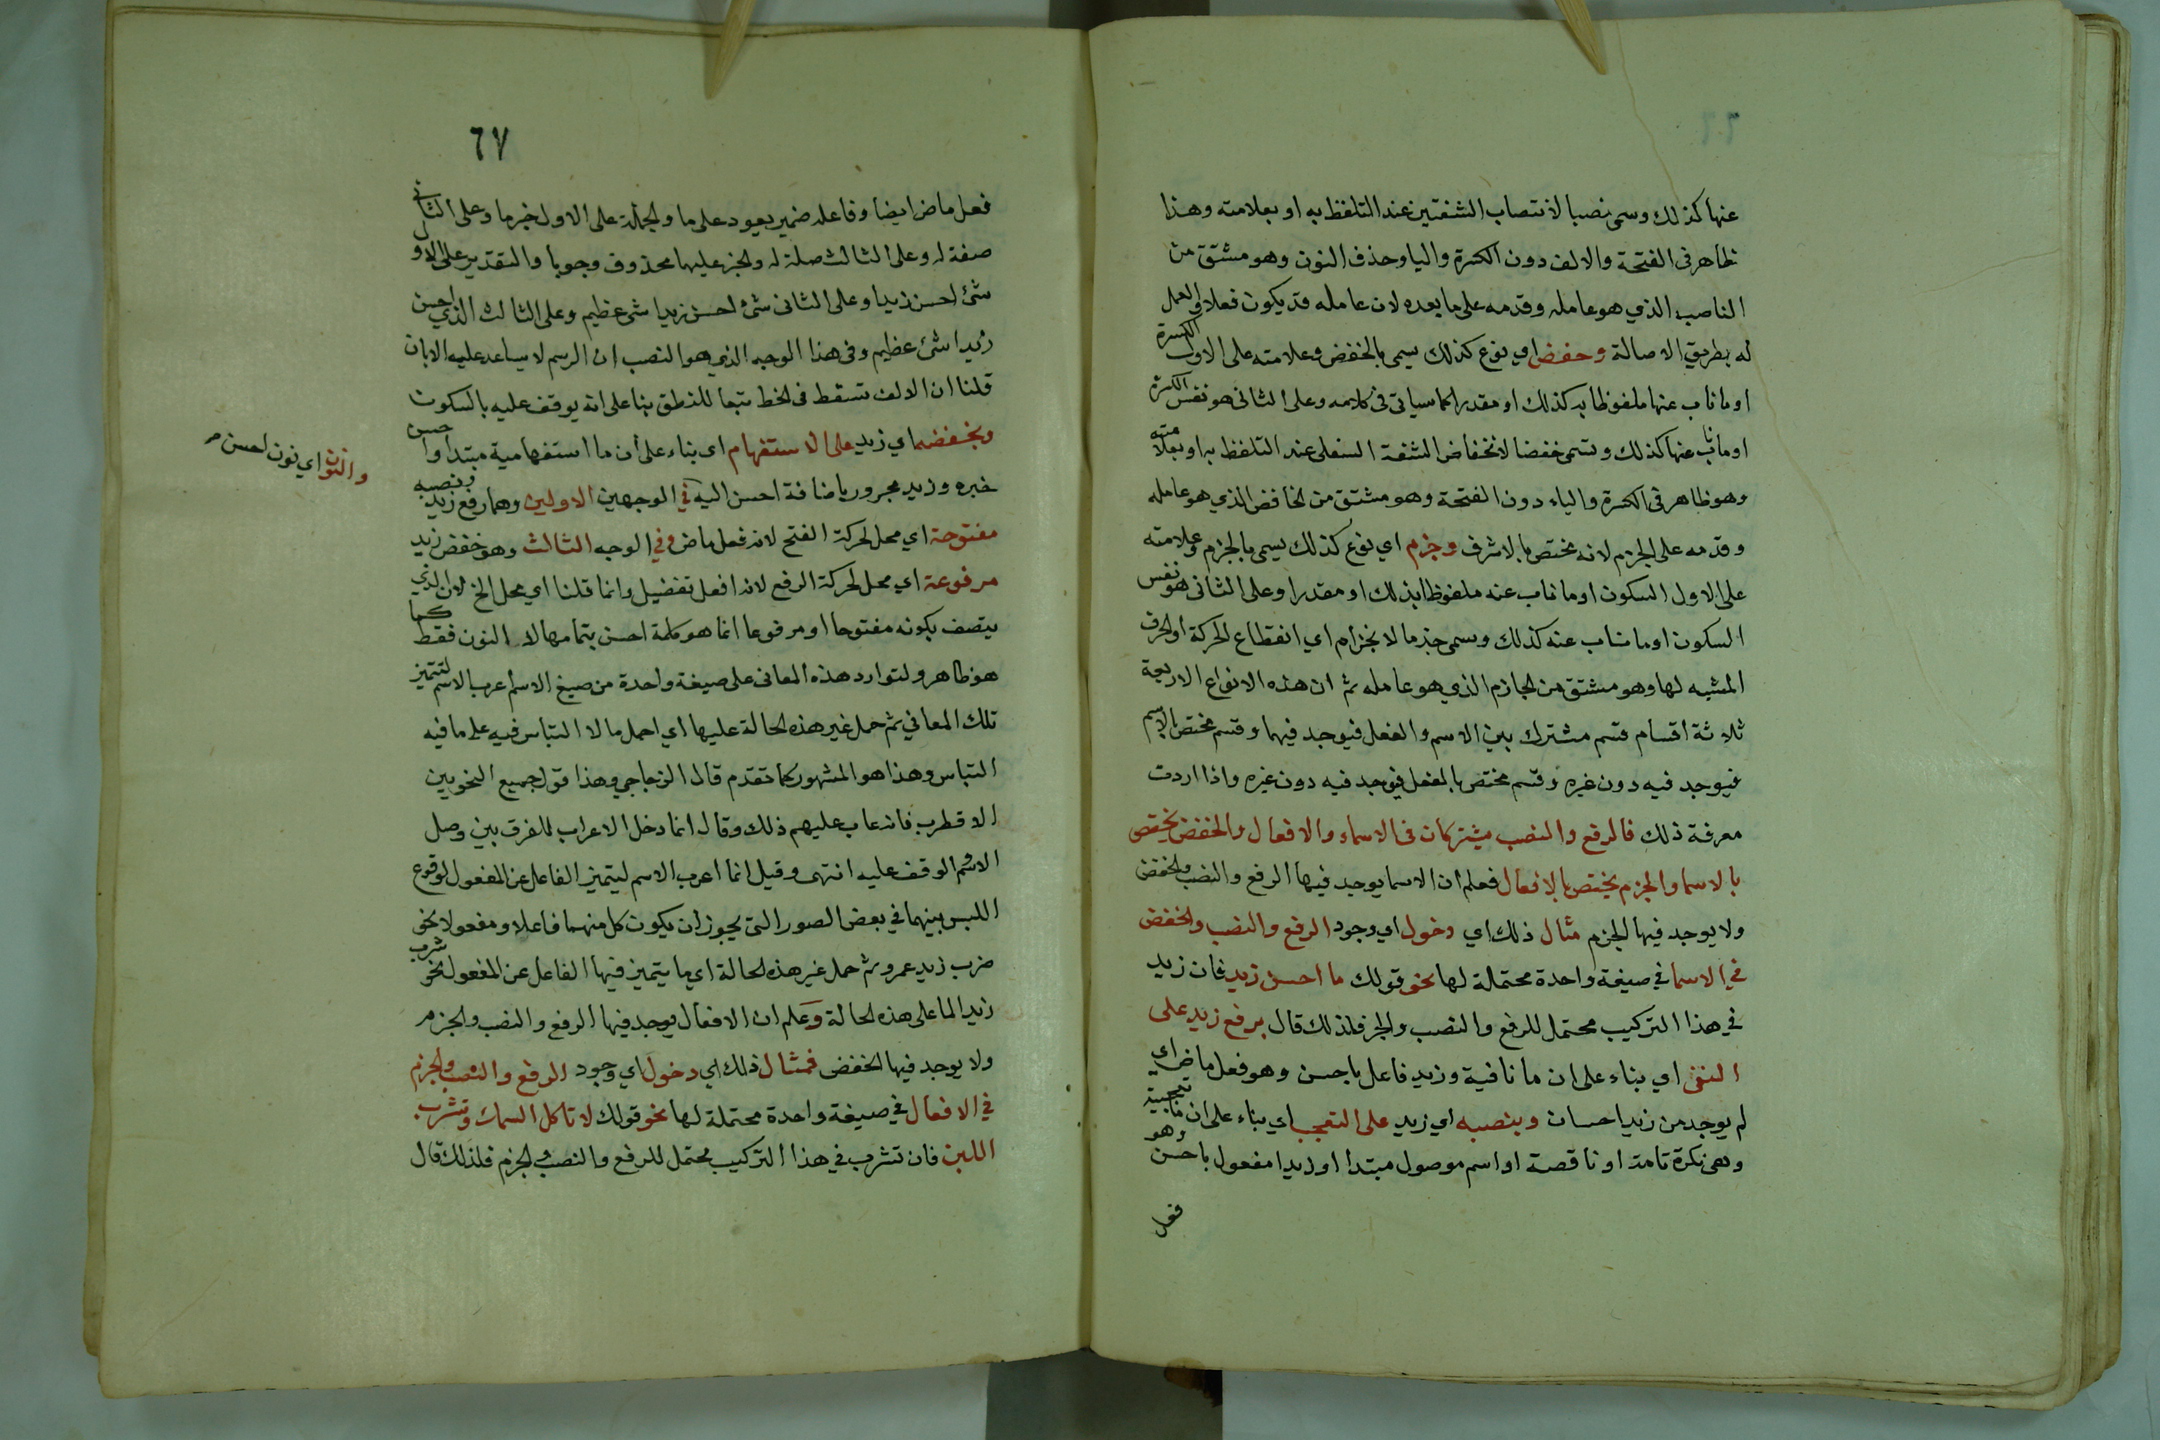 عنها كذلك وسمى نصبا لانتصاب الشفتين عند التلفظ به او بعلامته وهذا
ظاهر في الفتحة والالف دون الكسرة واليا وحذف النون وهو مشتق من
الناصب الذي هو عامله وقدمه على ما بعده لان عامله قد يكون فعلا والعمل
له بطريق الاصالة وخفض اي نوع كذلك يسمى بالخفض وعلامته على الاول الكسرة
او ما ناب عنها ملفوظا به كذلك او مقدرا كما سياتي في كلامه وعلى الثاني هو نفس الكسرة
او ما ناب عنها كذلك وتسمى خفضا لانخفاض الشفة السفلى عند التلفظ به او بعلامته
وهو ظاهر في الكسرة والياء دون الفتحة وهو مشتق من الخافض الذي هو عامله
وقدمه على الجزم لانه مختص بالاشرف وجزم اي نوع كذلك يسمى بالجزم وعلامته
على الاول السكون او ما ناب عنه ملفوظا بذلك او مقدرا وعلى الثاني هو نفس
السكون او ما ناب عنه كذلك وسمى جزما لانجزام اي انقطاع الحركة او الحرف
المشبه لها وهو مشتق من الجازم الذي هو عامله ثم ان هذه الانواع الاربعة
ثلاثة اقسام قسم مشترك بين الاسم والفعل فيوجد فيهما وقسم مختص بالاسم
فيوجد فيه دون غيره وقسم مختص بالفعل فيوجد فيه دون غيره واذا اردت
معرفة ذلك فالرفع والنصب مشتركان في الاسماء والافعال والخفض يختص
بالاسما والجزم يختص بالافعال فعلم ان الاسما يوجد فيها الرفع والنصب والخفض
ولا يوجد فيها الجزم مثال ذلك اي دخول اي وجود الرفع والنصب والخفض
في الاسما في صيغة واحدة محتملة لها نحو قولك ما احسن زيد فان زيد
في هذا التركيب محتمل للرفع والنصب والجر فلذلك قال برفع زيد على
النفى اي بناء على ان ما نافية وزيد فاعل باحسن وهو فعل ماض اي
لم يوجد من زيد احسان وبنصبه اي زيد على التعجب اي بناء على ان ما تعجبية
وهي نكرة تامة او ناقصة او اسم موصول مبتدا او زيدا مفعول باحسن وهو
فعل
٦٧
فعل ماض ايضا وفاعله ضمير يعود على ما والجملة على الاول خبرما وعلى الثاني
صفة له وعلى الثالث صلة له والخبر عليهما محذوف وجوبا والتقدير على الاول
شئ احسن زيدا وعلى الثاني شئ احسن زيدا شئ عظيم وعلى الثالث الذي احسن
زيدا شئ عظيم وفي هذا الوجه الذي هو النصب ان الرسم لا يساعد عليه الا بان
قلنا ان الالف تسقط في الخط تبعا للنطق بنا على انه يوقف عليه بالسكون
وبخفضه اي زيد على الاستفهام اي بناء على ان ما استفهامية مبتدا واحسن
خبره وزيد مجرور باضافة احسن اليه في الوجهين الاولين وهما رفع زيد ونصبه
والنون اي نون احسن
مفتوحة اي محل لحركة الفتح لانه فعل ماض وفي الوجه الثالث وهو خفض زيد
مرفوعة اي محل لحركة الرفع لانه افعل تفضيل وانما قلنا اي محل الخ لان الذي
يتصف بكونه مفتوحا او مرفوعا انما هو كلمة احسن بتمامها لا النون فقط كما
هو ظاهر ولتوارد هذه المعاني على صيغة واحدة من صيغ الاسم اعرب الاسم لتتميز
تلك المعاني ثم حمل غير هذه الحالة عليها اي احمل ما لا التباس فيه على ما فيه
التباس وهذا هو المشهور كما تقدم قال الزجاجي وهذا قول جميع النحويين
الا قطرب فانه عاب عليهم ذلك وقال انما دخل الاعراب للفرق بين وصل
الاسم والوقف عليه انتهى وقيل انما اعرب الاسم ليتميز الفاعل عن المفعول لوقوع
اللبس بينهما في بعض الصور التي يجوز ان يكون كل منهما فاعلا ومفعولا نحو
ضرب زيد عمرو ثم حمل غير هذه الحالة اي ما يتميز فيها الفاعل عن المفعول نحو شرب
زيد الما على هذه الحالة وعلم ان الافعال يوجد فيها الرفع والنصب والجزم
ولا يوجد فيها الخفض فمثال ذلك اي دخول اي وجود الرفع والنصب والجزم
في الافعال في صيغة واحدة محتملة لها نحو قولك لا تاكل السمك وتشرب
اللبن فان تشرب في هذا التركيب محتمل للرفع والنصب والجزم فلذلك قال